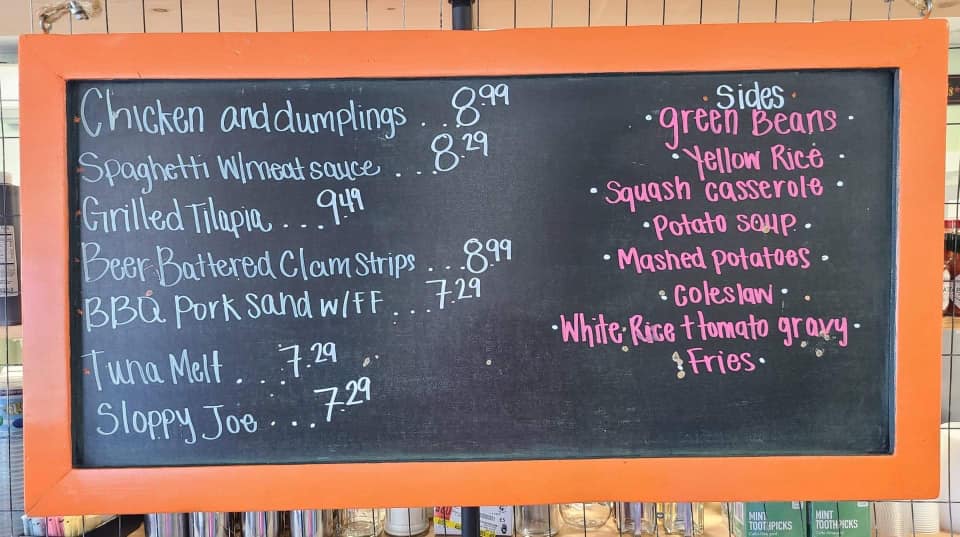 Chicken and dumplings . . 8.99
Spaghetti W/meat sauce . . . 8.29
Grilled Tilapia . . . 9.49
Beer Battered Clam Strips . . . 8.99
BBQ Pork Sand w/FF . . . 7.29
Tuna Melt . . . 7.29
Sloppy Joe . . . 7.29
Sides
green Beans
Yellow Rice
Squash Casserole
Potato soup
Mashed potatoes
Coleslaw
White Rice + tomato gravy
Fries
MINT
TOOTHPICKS
MINT
TOOTHPICKS